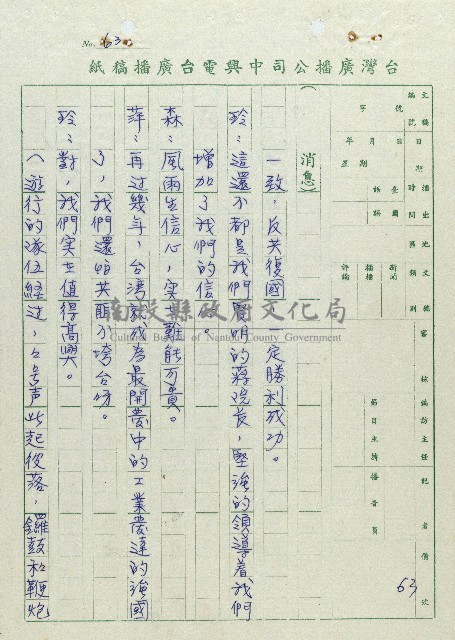 No. 63
台灣廣播公司中興電台廣播稿紙
文稿編號
字 號
日期
年 月 日
星期
播出時間
地區
臺語
國語
文稿類別
審核
編訪主任
節目主持
記者
播音員
備攷
63
（消息）
一致，反共復國一定勝利成功。
玲：這還不都是我們賢明的蔣院長，堅強的領導着我們
增加了我們的信心。
森：風雨生信心，實在難能可貴。
萍：再过幾年，台湾就成為最開發中的工業發達的強國
了，我們還怕共匪不垮台吗。
玲：對，我們实在值得高興。
（遊行的隊伍經过，口号声此起彼落，鑼鼓和鞭炮
南投縣政府文化局
Cultural Bureau of Nantou County Government